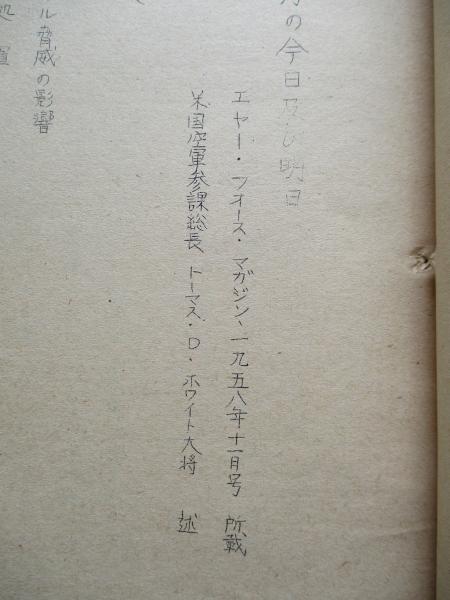 の今日及び明日
エヤー・フオース・マガジン、一九五八年十一月号 所載
米国空軍参課総長 トーマス・D・ホワイト大将 述
ル脅威の影響
処置